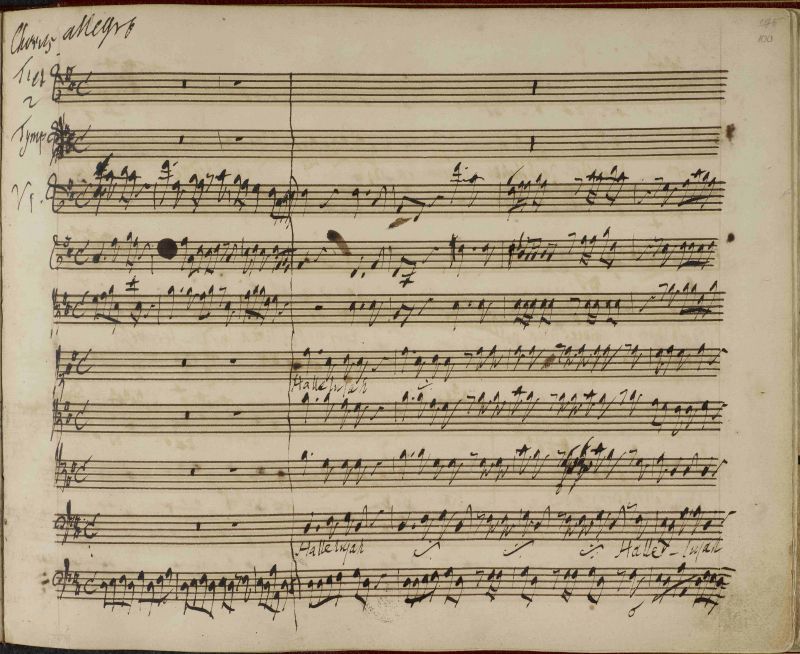 Chorus allegro
2
Tymp
V 1.
Hallelujah
Hallelujah Hallelujah
6